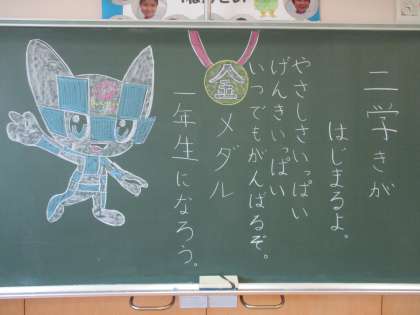 二学きが
はじまるよ。
やさしさいっぱい
げんきいっぱい
いつでもがんばるぞ。
金メダル
一年生になろう。